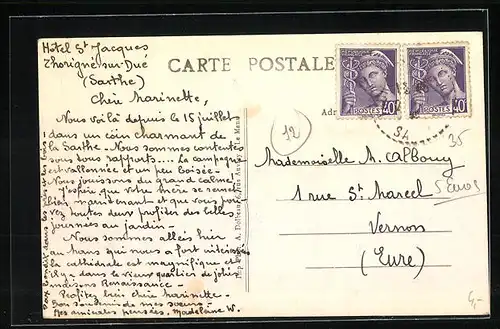 Hôtel St Jacques
Thorigné-sur-Dué
(Sarthe)
Chère Marinette,
Nous voilà depuis le 15 juillet
dans un coin charmant de
la Sarthe - Nous sommes contentes
sous tous rapports.... La campagne
est vallonnée et un peu boisée -
Nous jouissons du grand calme!
J'espère que votre mère se remet
bien maintenant et que vous pou-
vez toutes deux profiter des belles
journées au jardin -
Nous sommes allées hier
au Mans qui nous a fort intéressées
la cathédrale est magnifique et
il y a dans le vieux quartier de jolies
maisons Renaissance -
Profitez bien chère Marinette -
Bon souvenir de mes sœurs -
Mes amicales pensées. Madeleine W.
CARTE POSTALE
Adr
POSTES 40c
POSTES 40c
12
35
Mademoiselle M. Calbouy
1 rue St Marcel
Vernon
(Eure)
5 Euros
4,-